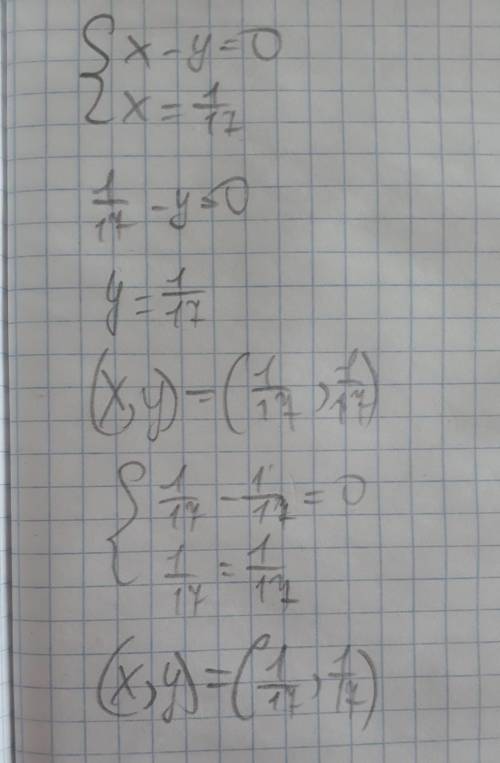 { x - y = 0
{ x = 1/17
1/17 - y = 0
y = 1/17
(x, y) = (1/17, 1/17)
{ 1/17 - 1/17 = 0
{ 1/17 = 1/17
(x, y) = (1/17, 1/17)